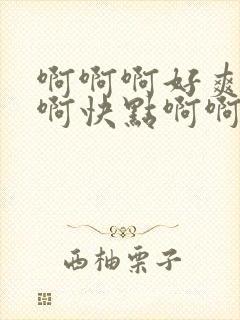 啊啊啊好爽
啊快點啊啊
西柚栗子